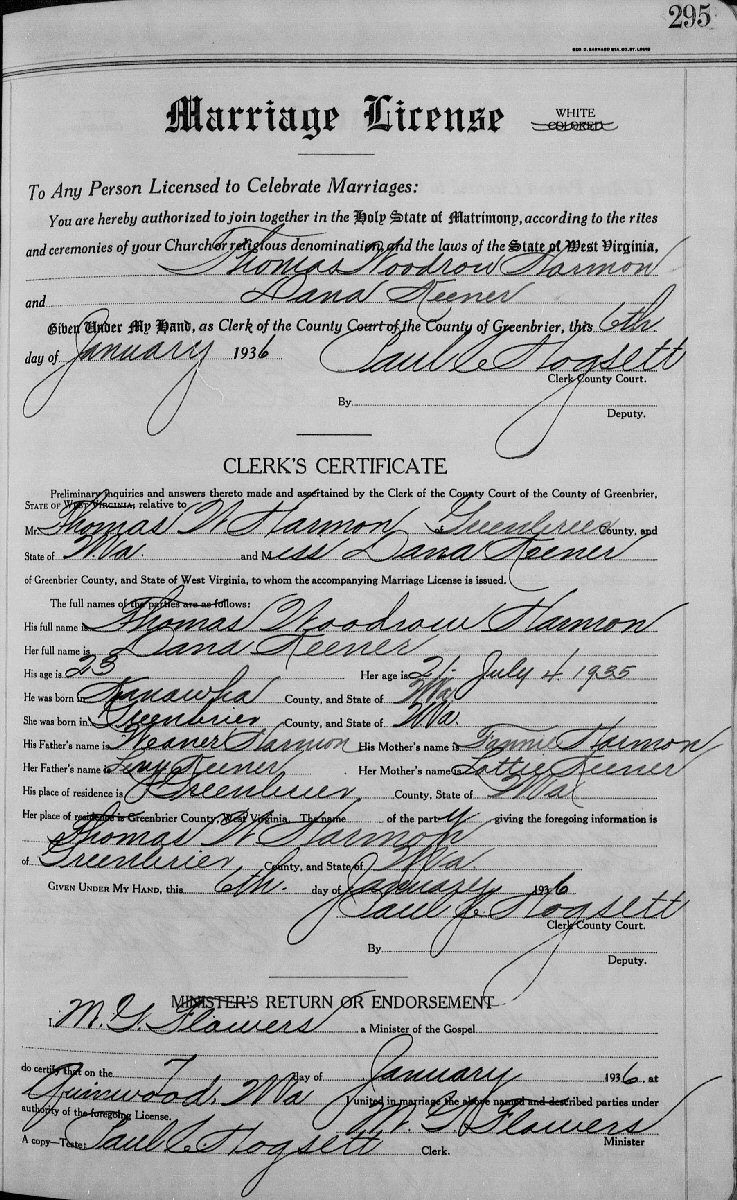 295
GEO. D. BARNARD STA. CO. ST. LOUIS
Marriage License
WHITE
COLORED
To Any Person Licensed to Celebrate Marriages:
You are hereby authorized to join together in the Holy State of Matrimony, according to the rites
and ceremonies of your Church or religious denomination, and the laws of the State of West Virginia,
Thomas Woodrow Harmon
and Dana Keener
Given Under My Hand, as Clerk of the County Court of the County of Greenbrier, this 6th
day of January 1936 Paul C Hogsett
Clerk County Court.
By
Deputy.
CLERK'S CERTIFICATE
Preliminary inquiries and answers thereto made and ascertained by the Clerk of the County Court of the County of Greenbrier,
STATE OF WEST VIRGINIA, relative to
Mr. Thomas W Harmon of Greenbrier County, and
State of W.Va. and Miss Dana Keener
of Greenbrier County, and State of West Virginia, to whom the accompanying Marriage License is issued.
The full names of the parties are as follows:
His full name is Thomas Woodrow Harmon
Her full name is Dana Keener
His age is 23 Her age is 21. July 4 1935
He was born in Kanawha County, and State of W Va
She was born in Greenbrier County, and State of W Va.
His Father's name is Weaner Harmon His Mother's name is Harmon
Her Father's name is Levy Keener Her Mother's name is Lottie Keener
His place of residence is Greenbrier County, State of W Va
Her place of residence is Greenbrier County, West Virginia. The name of the party giving the foregoing information is
Thomas W Harmon
of Greenbrier County, and State of W Va.
GIVEN UNDER MY HAND, this 6th. day of January 1936
Paul C. Hogsett
Clerk County Court.
By
Deputy.
MINISTER'S RETURN OR ENDORSEMENT
I, M. G. Flowers a Minister of the Gospel
do certify that on the 7 Day of January 1936 at
Quinwood, W Va I united in marriage the above named and described parties under
authority of the foregoing License. M. G. Flowers
Minister
A copy—Teste: Paul C Hogsett Clerk.